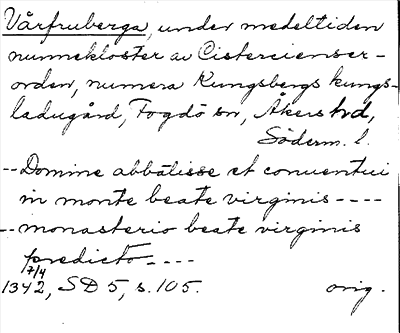 Vårfruberga, under medeltiden
nunnekloster av Cistercienser-
orden, numera Kungsbergs kungs-
ladugård, Fogdö sn, Åkers hd,
Söderm. l.
-- Domine abbatisse et conuentui
in monte beate virginis ----
-- monasterio beate virginis
predicto ----
7/4
1342, SD 5, s. 105. orig.